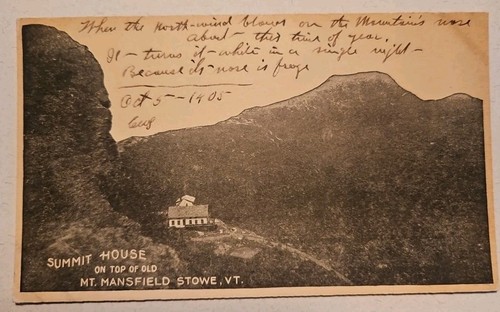 When the north-wind blows on the Mountain's nose
About - this time of year,
It - turns it - white in a single night -
Because its - nose is froze
Oct 5 - 1905
SUMMIT HOUSE
ON TOP OF OLD
MT. MANSFIELD STOWE, VT.